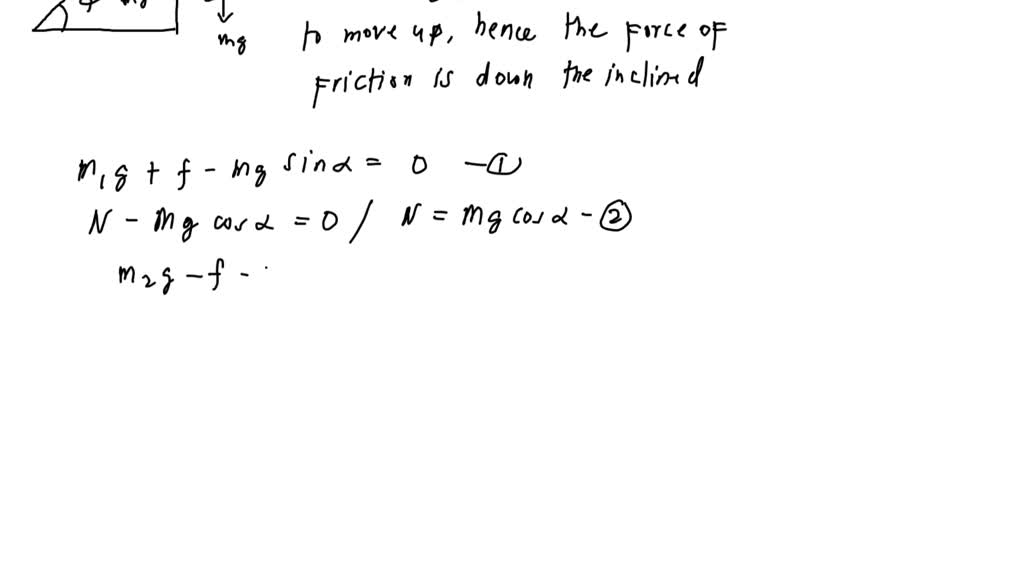 mg
to move up, hence the force of
friction is down the inclined
m₁g + f - mg sinα = 0 -①
N - mg cosα = 0 / N = mg cosα - ②
m₂g - f -